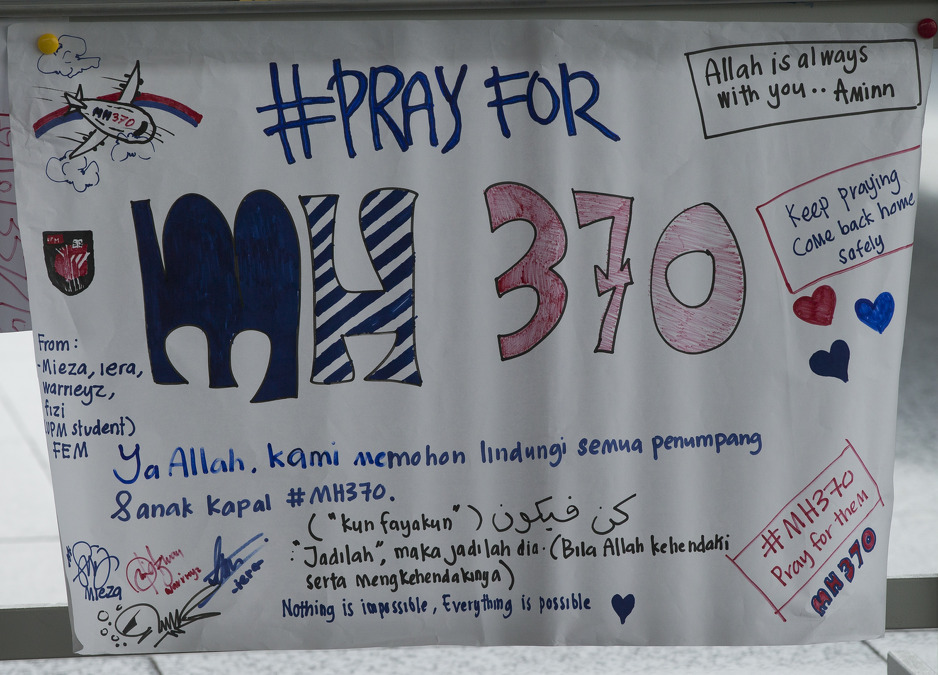 #PRAY FOR
MH 370
MH370
Allah is always
with you.. Aminn
Keep praying
Come back home
safely
UPM
From :
- Mieza, iera,
warneyz,
fizi
(UPM student)
FEM
Ya Allah, kami memohon lindungi semua penumpang
& anak kapal #MH370.
("kun fayakun") كن فيكون
"Jadilah", maka jadilah dia. (Bila Allah kehendaki
serta mengkehendakinya)
Nothing is impossible, Everything is possible
#MH370
Pray for them
MH370
Mieza
iera